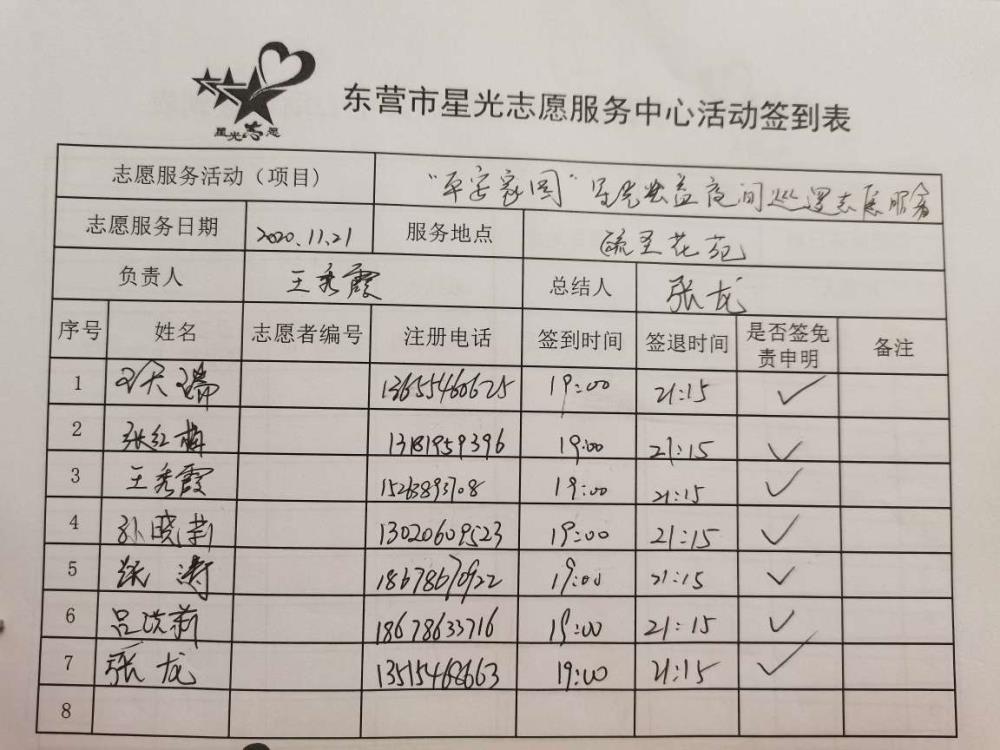 星光志愿
东营市星光志愿服务中心活动签到表
志愿服务活动（项目） “平安家园”星光公益夜间巡逻志愿服务
志愿服务日期 2020.11.21 服务地点 花苑
负责人 王秀霞 总结人 张龙
序号 姓名 志愿者编号 注册电话 签到时间 签退时间 是否签免责申明 备注
1 瑞 13655460625 19:00 21:15 ✓
2 张红梅 13181959396 19:00 21:15 ✓
3 王秀霞 15263893708 19:00 21:15 ✓
4 孙晓莉 13020609523 19:00 21:15 ✓
5 涛 18678670922 19:00 21:15 ✓
6 吕洪莉 18678633716 19:00 21:15 ✓
7 张龙 13515468663 19:00 21:15 ✓
8